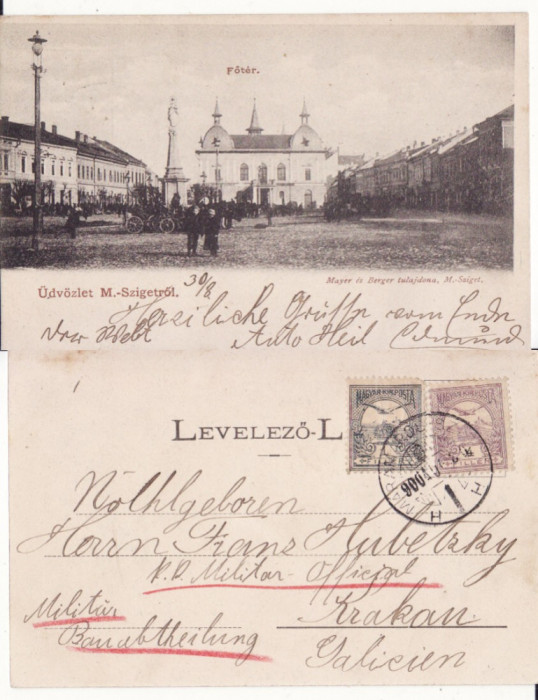 Főtér.
Üdvözlet M.-Szigetről. 30/8
Mayer és Berger tulajdona, M.-Sziget.
Herzliche Grüße vom Ende
der Welt Auto Heil Edmund
LEVELEZŐ-L
MAGYAR KIR. POSTA
MAGYAR KIR. POSTA
Wohlgeboren
Herrn Franz Hubetzky
K. K. Militär-Official
Militär
Bauabtheilung
Krakau
Galicien